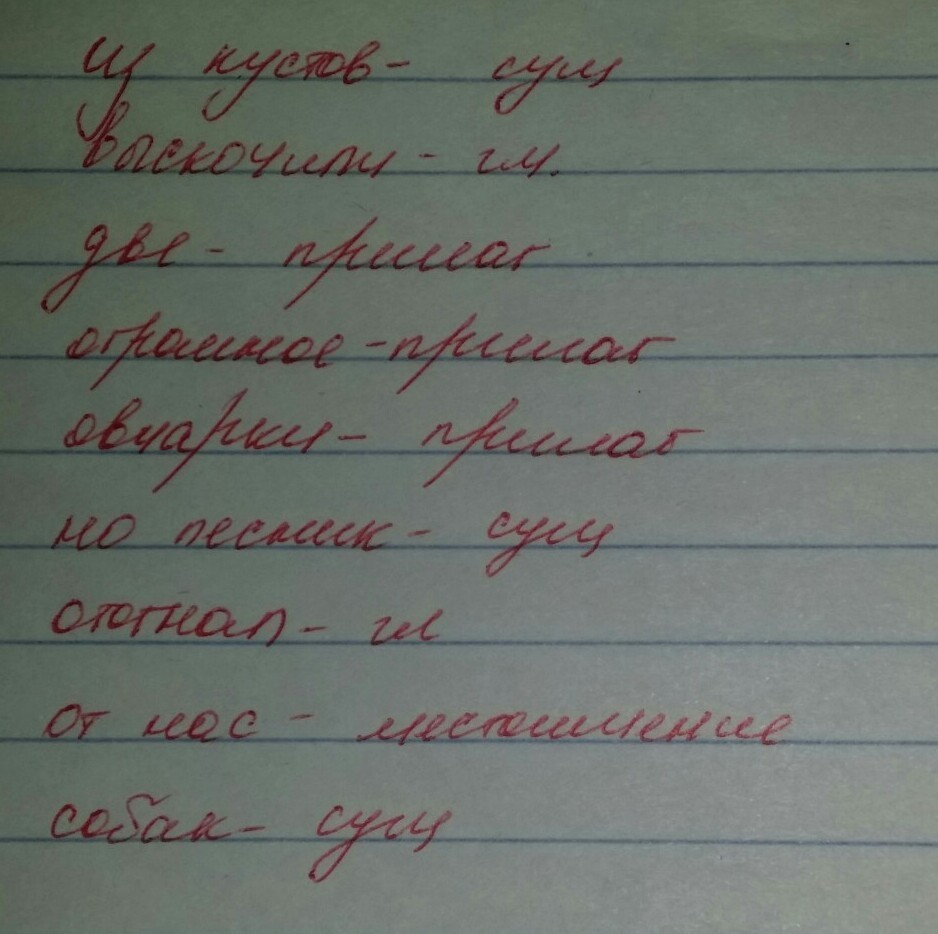 из кустов- сущ
выскочили - гл.
две - прилаг
огромное -прилаг
овчарки - прилаг
но лесник - сущ
отогнал - гл
от нас - местоимение
собак - сущ